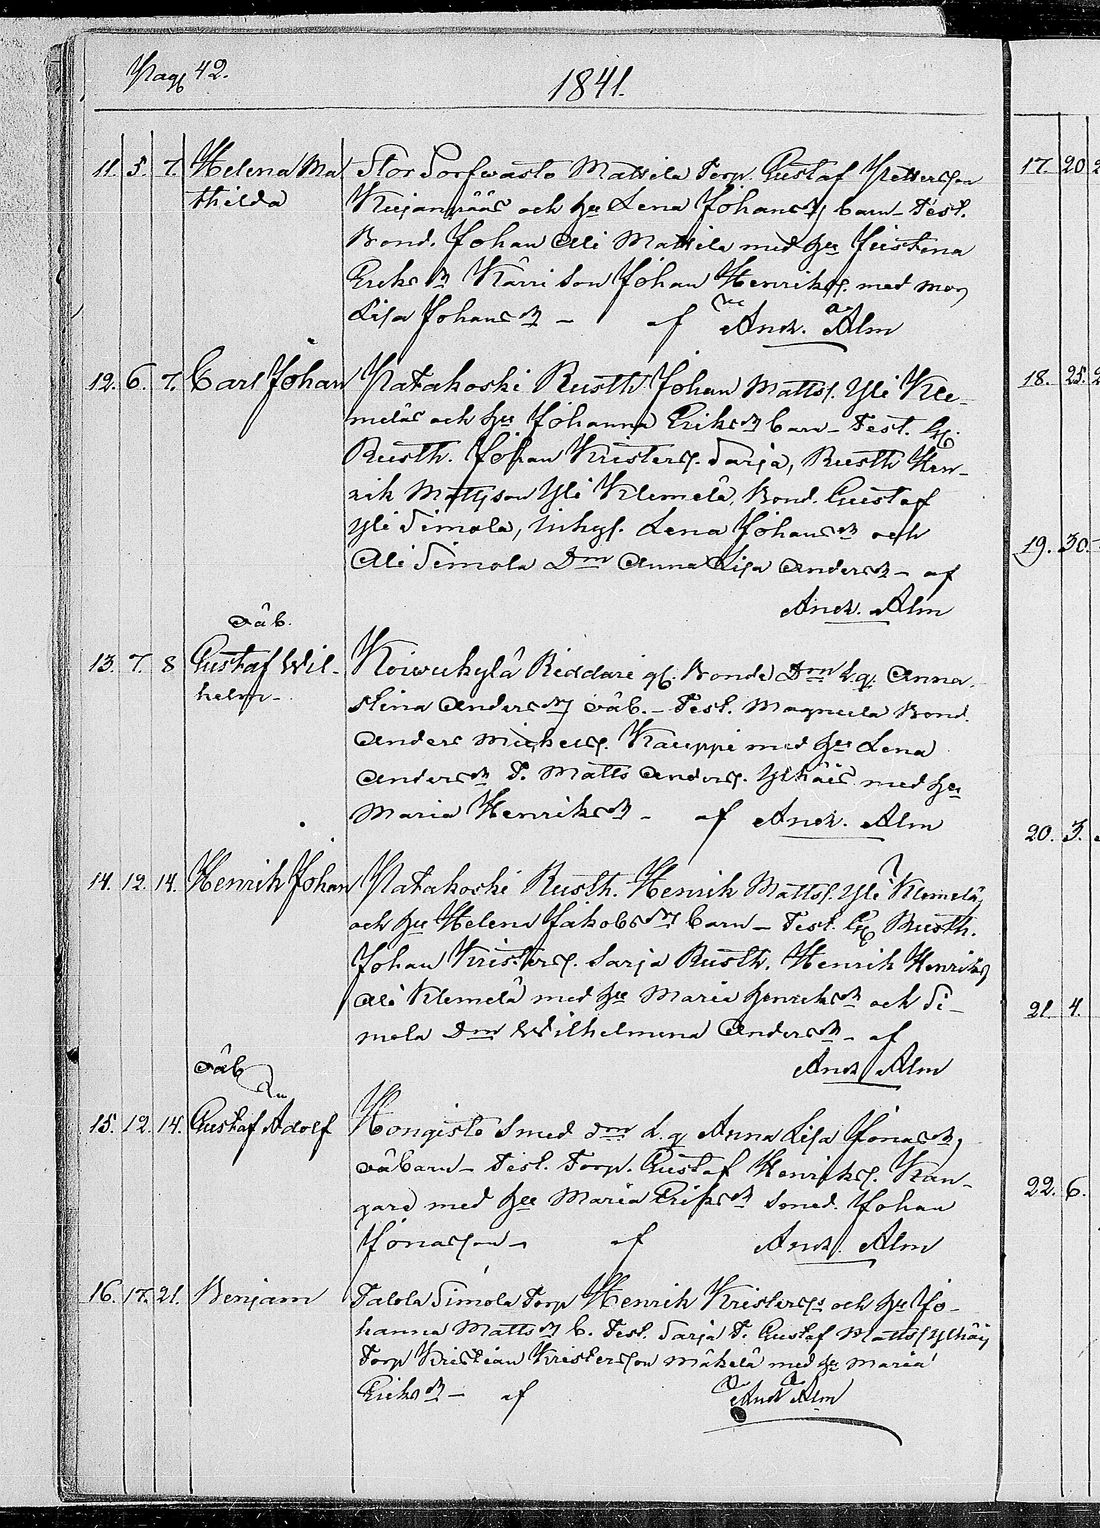 Pag 42.
1841.
11. 5. 7. Helena Ma Stor Sorfwasto Mattila Torp. Gustaf Petterson
thilda Kujanpää och hu Lena Johans barn - Test.
Bond. Johan Ali Mattila med hu Justina
Eriks Kärri son Johan Henriks. med mor
Lisa Johans - af And. Alm
12. 6. 7. Carl Johan Patakoski Rusth. Johan Matts. Yli Kle-
melä och hu Johanna Eriks barn - Test.
Rusth. Johan Kristers. Sarja, Rusth Hen-
rik Mattsson Yli Klemelä, Bond. Gustaf
Yli Simola, Inhys. Lena Johans och
Ali Simola Dm Anna Lisa Anders - af
And. Alm
oäb.
13. 7. 8 Gustaf Wil- Koiwukylä Riddari Bonde Dm L. q. Anna
helm - Stina Anders oäb. - Test. Magnula Bond.
Anders Michels. Kauppi med hu Lena
Anders T. Matts Anders. Ylhäis med hu
Maria Henriks - af And. Alm
14. 12. 14. Henrik Johan Patakoski Rusth. Henrik Matts. Yli Klemelä
och hu Helena Jakobs barn - Test. Rusth.
Johan Kristers. Sarja Rusth. Henrik Henriks
Ali Klemelä med hu Maria Henriks och Si-
mola Dm Wilhelmina Anders - af
And. Alm
oäb
15. 12. 14. Gustaf Adolf Hongisto Smed dm L. q Anna Lisa Jonas
oäbarn - Test. Torp. Gustaf Henriks. Kan-
gare med hu Maria Eriks Smed. Johan
Jonasson - af And. Alm
16. 17. 21. Benjam Talola Simola Torp Henrik Kristers och hu Jo-
hanna Matts b. Test. Sarja T. Gustaf Matts Ylhäis
Torp Kristian Kristersson Mäkelä med hu Maria
Eriks - af And Alm
17. 20
18. 25.
19. 30.
20. 3.
21. 4.
22. 6.